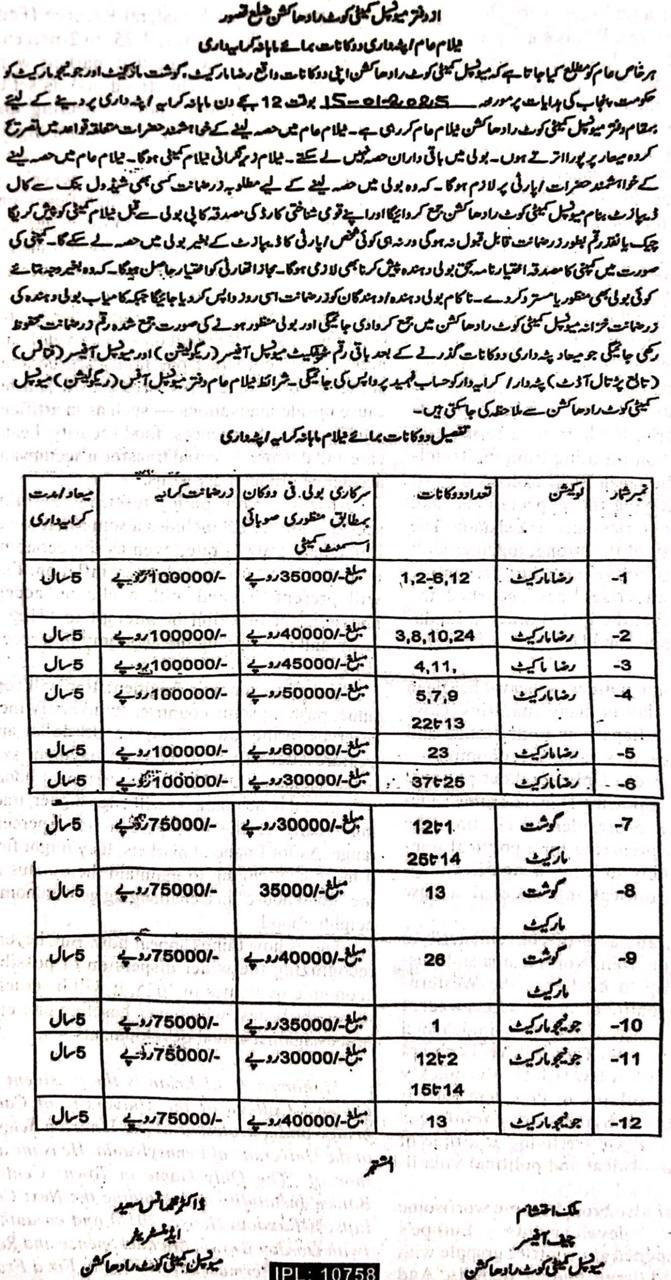 از دفتر میونسپل کمیٹی کوٹ رادھاکشن ضلع قصور
نیلام عام / پٹہ داری دوکانات برائے ماہانہ کرایہ داری
ہر خاص عام کو مطلع کیا جاتا ہے کہ میونسپل کمیٹی کوٹ رادھاکشن اپنی دوکانات واقع رضا مارکیٹ، گوشت مارکیٹ اور جونیجو مارکیٹ کو
حکومت پنجاب کی ہدایات پر مورخہ 15-01-2025 بوقت 12 بجے دن ماہانہ کرایہ / پٹہ داری پر دینے کے لیئے
بمقام دفتر میونسپل کمیٹی کوٹ رادھاکشن نیلام عام کر رہی ہے۔ نیلام عام میں حصہ لینے کے خواہشمند حضرات متعلقہ قواعد میں تشریح
کردہ معیار پر پورا اترتے ہوں۔ بولی میں باقی داران حصہ نہیں لے سکتے۔ نیلام زیر نگرانی نیلام کمیٹی ہوگا۔ نیلام عام میں حصہ لینے
کے خواہشمند حضرات / پارٹی پر لازم ہوگا۔ کہ وہ بولی میں حصہ لینے کے لیے مطلوبہ زرضمانت کسی بھی شیڈول بنک سے کال
ڈیپازٹ بنام میونسپل کمیٹی کوٹ رادھاکشن جمع کروائیگا اور اپنے قومی شناختی کارڈ کی مصدقہ کاپی بولی سے قبل نیلام کمیٹی کو پیش کریگا
چیک یا نقد رقم بطور زرضمانت قابل قبول نہ ہوگی ورنہ ہی کوئی شخص / پارٹی کا ڈیپازٹ کے بغیر بولی میں حصہ لے سکے گا۔ کمپنی کی
صورت میں کمپنی کا مصدقہ اختیار نامہ بحق بولی دہندہ پیش کرنا بھی لازمی ہوگا۔ مجاز اتھارٹی کو اختیار حاصل ہوگا۔ کہ وہ بغیر وجہ بتائے
کوئی بولی بھی منظور یا مسترد کر دے۔ ناکام بولی دہندہ / دہندگان کو زرضمانت اسی روز واپس کر دیا جائیگا جبکہ کامیاب بولی دہندہ کی
زرضمانت خزانہ میونسپل کمیٹی کوٹ رادھاکشن میں جمع کروادی جائیگی اور بولی منظور ہونے کی صورت جمع شدہ رقم زرضمانت محفوظ
رکھی جائیگی جو میعاد پٹہ داری دوکانات گذرنے کے بعد باقی رقم سرٹیفکیٹ میونسپل آفیسر (ریگولیشن) اور میونسپل آفیسر (فنانس)
(تابع پڑتال آڈٹ) پٹہ دار / کرایہ دار کو حساب فہمید پر واپس کی جائیگی۔ شرائط نیلام عام دفتر میونسپل آفس (ریگولیشن) میونسپل
کمیٹی کوٹ رادھاکشن سے ملاحظہ کی جاسکتی ہیں۔
تفصیل دوکانات برائے نیلام ماہانہ کرایہ / پٹہ داری
نمبر شمار لوکیشن تعداد دوکانات سرکاری بولی فی دوکان بمطابق منظوری صوبائی اسسمنٹ کمیٹی زرضمانت کرایہ میعاد / مدت کرایہ داری
1- رضا مارکیٹ 1,2-6,12 مبلغ -/35000 روپے -/100000 روپے 5 سال
2- رضا مارکیٹ 3,8,10,24 مبلغ -/40000 روپے -/100000 روپے 5 سال
3- رضا مارکیٹ 4,11, مبلغ -/45000 روپے -/100000 روپے 5 سال
4- رضا مارکیٹ 5,7,9 مبلغ -/50000 روپے -/100000 روپے 5 سال
13 تا 22
5- رضا مارکیٹ 23 مبلغ -/60000 روپے -/100000 روپے 5 سال
6- رضا مارکیٹ 25 تا 37 مبلغ -/30000 روپے -/100000 روپے 5 سال
7- گوشت 1 تا 12 مبلغ -/30000 روپے -/75000 روپے 5 سال
مارکیٹ 14 تا 25
8- گوشت 13 مبلغ -/35000 -/75000 روپے 5 سال
مارکیٹ
9- گوشت 26 مبلغ -/40000 روپے -/75000 روپے 5 سال
مارکیٹ
10- جونیجو مارکیٹ 1 مبلغ -/35000 روپے -/75000 روپے 5 سال
11- جونیجو مارکیٹ 2 تا 12 مبلغ -/30000 روپے -/75000 روپے 5 سال
14 تا 15
12- جونیجو مارکیٹ 13 مبلغ -/40000 روپے -/75000 روپے 5 سال
المشتہر
ملک احتشام
چیف آفیسر
میونسپل کمیٹی کوٹ رادھاکشن
ڈاکٹر محمد انس سعید
ایڈمنسٹریٹر
میونسپل کمیٹی کوٹ رادھاکشن
IPL: 10758